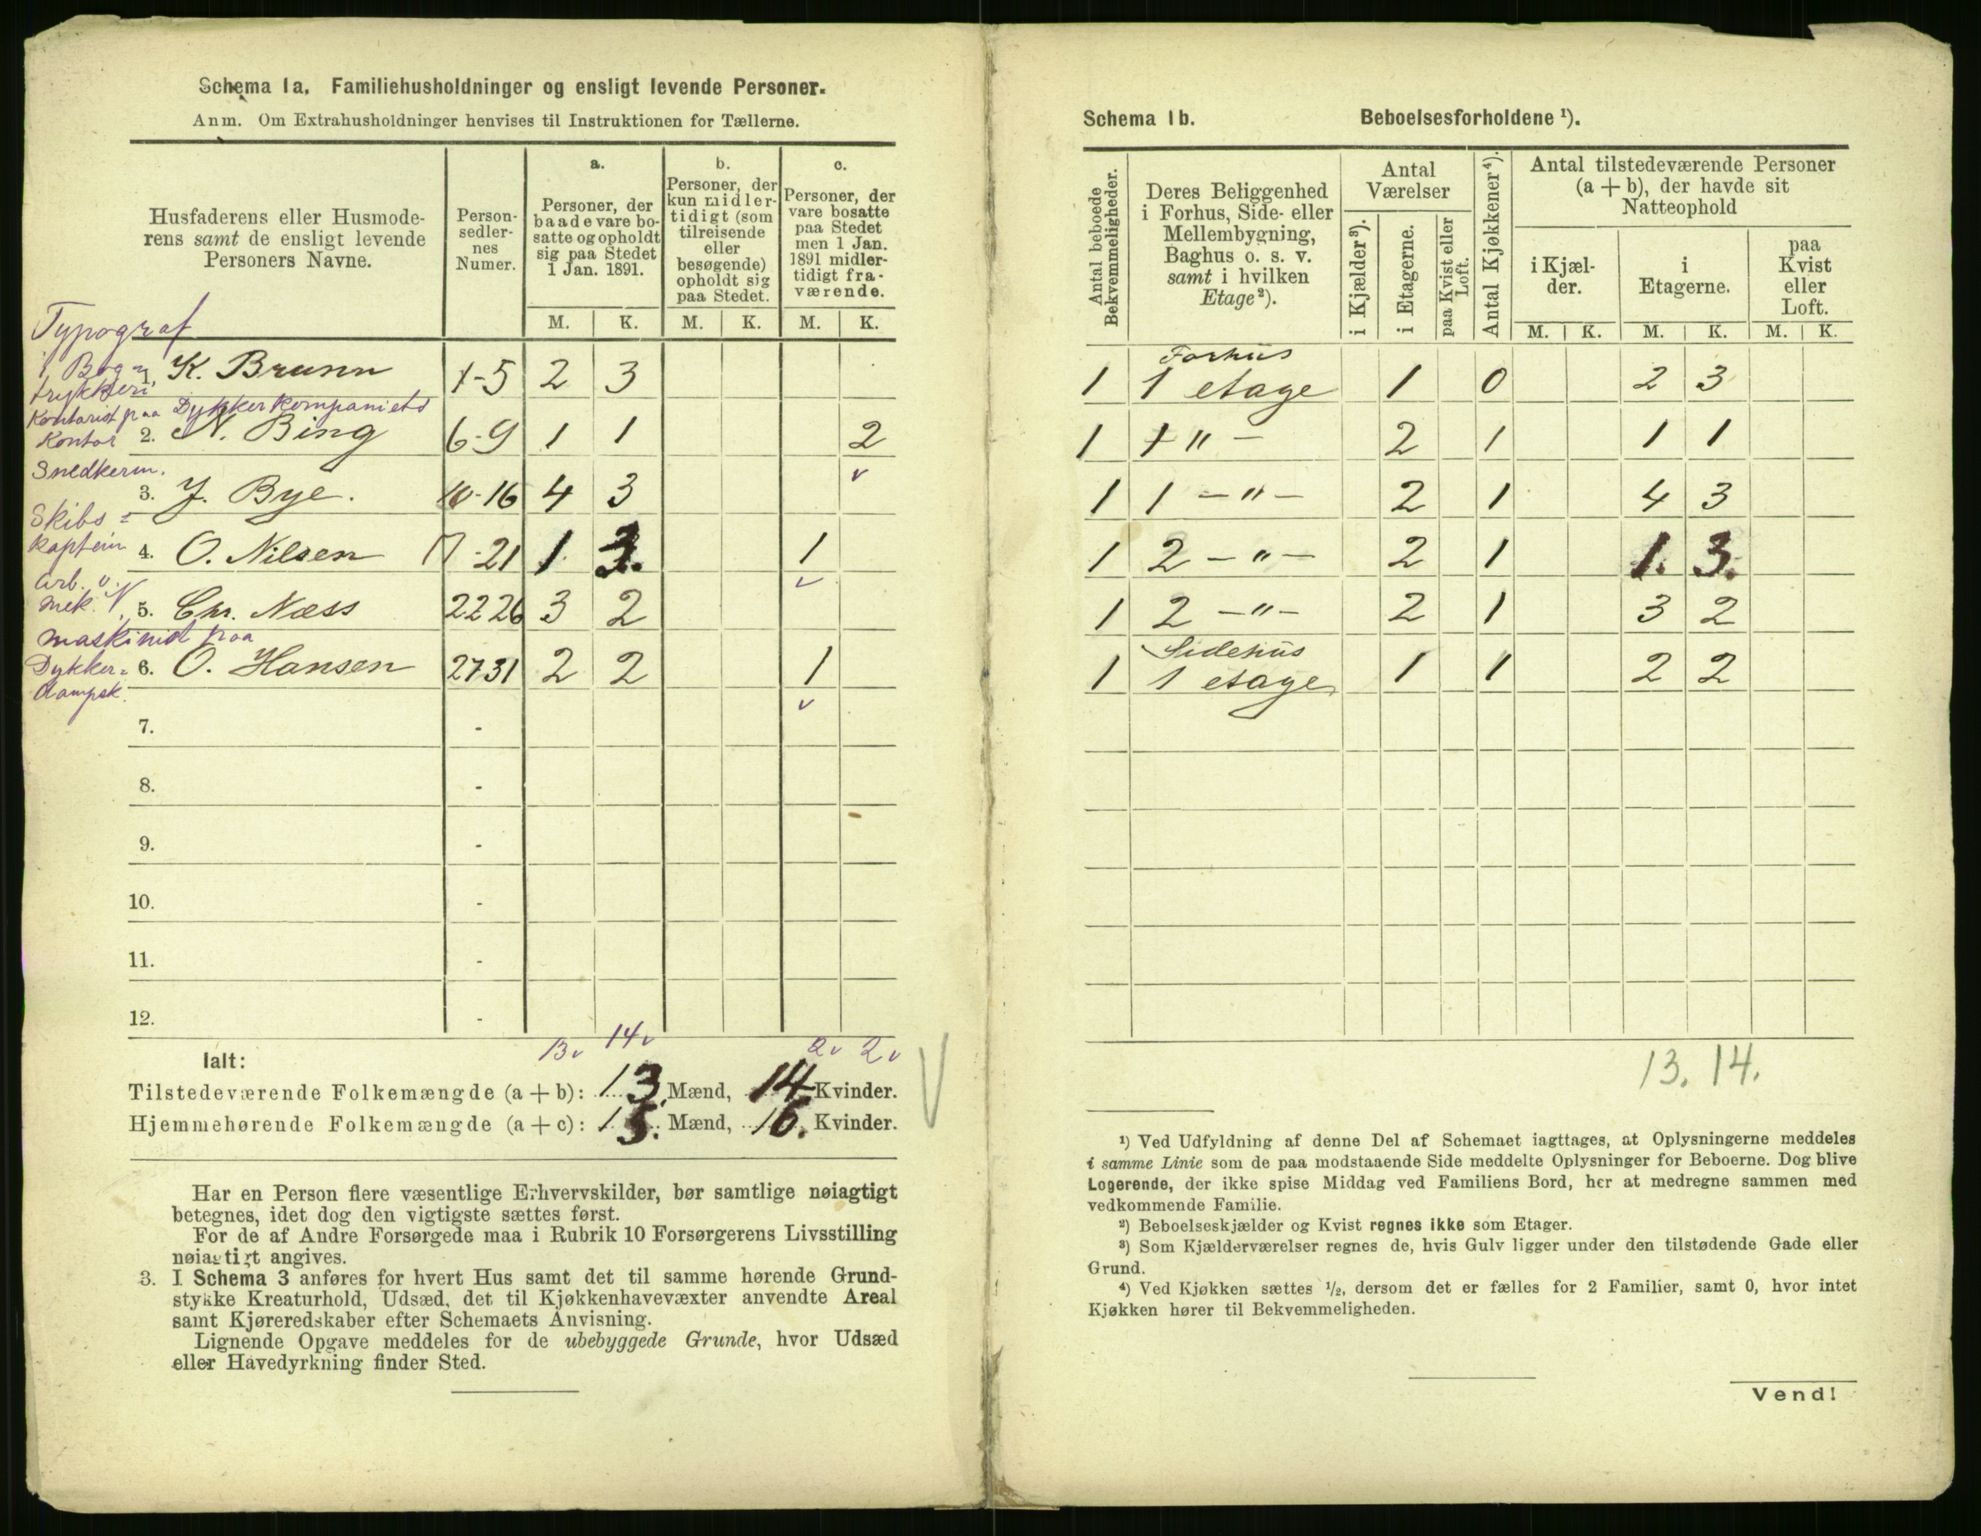 Schema 1a. Familiehusholdninger og ensligt levende Personer.
Anm. Om Extrahusholdninger henvises til Instruktionen for Tællerne.
Husfaderens eller Husmoderens samt de ensligt levende Personers Navne.
Personsedlernes Numer.
a. Personer, der baade vare bosatte og opholdt sig paa Stedet 1 Jan. 1891.
b. Personer, der kun midlertidigt (som tilreisende eller besøgende) opholdt sig paa Stedet.
c. Personer, der vare bosatte paa Stedet men 1 Jan. 1891 midlertidigt fraværende.
M. K. M. K. M. K.
Typograf
i Bog-
trykkeri
1. K. Brunn 1-5 2 3
Kontorist paa Dykkerkompaniets
Kontor
2. N. Bing 6-9 1 1 2
Snedkerm.
3. J. Bye. 10-16 4 3
Skibs=
kaptein
4. O. Nilsen 17-21 1. 3. 1
Arb. v.
mek. V.
5. Chr. Næss 22 26 3 2
maskinist paa
Dykker=
dampsk.
6. O. Hansen 27 31 2 2 1
7. -
8. -
9. -
10. -
11. -
12. -
13 v 14 v 2 v 2 v
Ialt:
Tilstedeværende Folkemængde (a + b): 13. Mænd, 14 Kvinder.
Hjemmehørende Folkemængde (a + c): 15. Mænd, 16. Kvinder.
Har en Person flere væsentlige Erhvervskilder, bør samtlige nøiagtigt
betegnes, idet dog den vigtigste sættes først.
For de af Andre Forsørgede maa i Rubrik 10 Forsørgerens Livsstilling
nøiagtigt angives.
3. I Schema 3 anføres for hvert Hus samt det til samme hørende Grund-
stykke Kreaturhold, Udsæd, det til Kjøkkenhavevæxter anvendte Areal
samt Kjøreredskaber efter Schemaets Anvisning.
Lignende Opgave meddeles for de ubebyggede Grunde, hvor Udsæd
eller Havedyrkning finder Sted.
Schema 1b. Beboelsesforholdene ¹).
Antal beboede Bekvemmeligheder.
Deres Beliggenhed i Forhus, Side- eller Mellembygning, Baghus o. s. v. samt i hvilken Etage²).
Antal Værelser
i Kjælder³).
i Etagerne.
paa Kvist eller Loft.
Antal Kjøkkener⁴).
Antal tilstedeværende Personer (a + b), der havde sit Natteophold
i Kjælder.
i Etagerne.
paa Kvist eller Loft.
M. K. M. K. M. K.
Forhus
1 1 etage 1 0 2 3
1 1 " - 2 1 1 1
1 1 - " - 2 1 4 3
1 2 - " - 2 1 1. 3.
1 2 - " - 2 1 3 2
Sidehus
1 1 etage 1 1 2 2
13. 14.
¹) Ved Udfyldning af denne Del af Schemaet iagttages, at Oplysningerne meddeles
i samme Linie som de paa modstaaende Side meddelte Oplysninger for Beboerne. Dog blive
Logerende, der ikke spise Middag ved Familiens Bord, her at medregne sammen med
vedkommende Familie.
²) Beboelseskjælder og Kvist regnes ikke som Etager.
³) Som Kjælderværelser regnes de, hvis Gulv ligger under den tilstødende Gade eller
Grund.
⁴) Ved Kjøkken sættes ½, dersom det er fælles for 2 Familier, samt 0, hvor intet
Kjøkken hører til Bekvemmeligheden.
Vend!